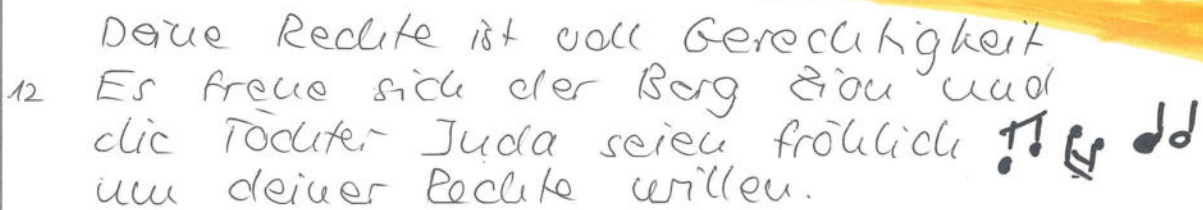 Deine Rechte ist voll Gerechtigkeit
12 Es freue sich der Berg Zion und
die Töchter Juda seien fröhlich
um deiner Rechte willen.